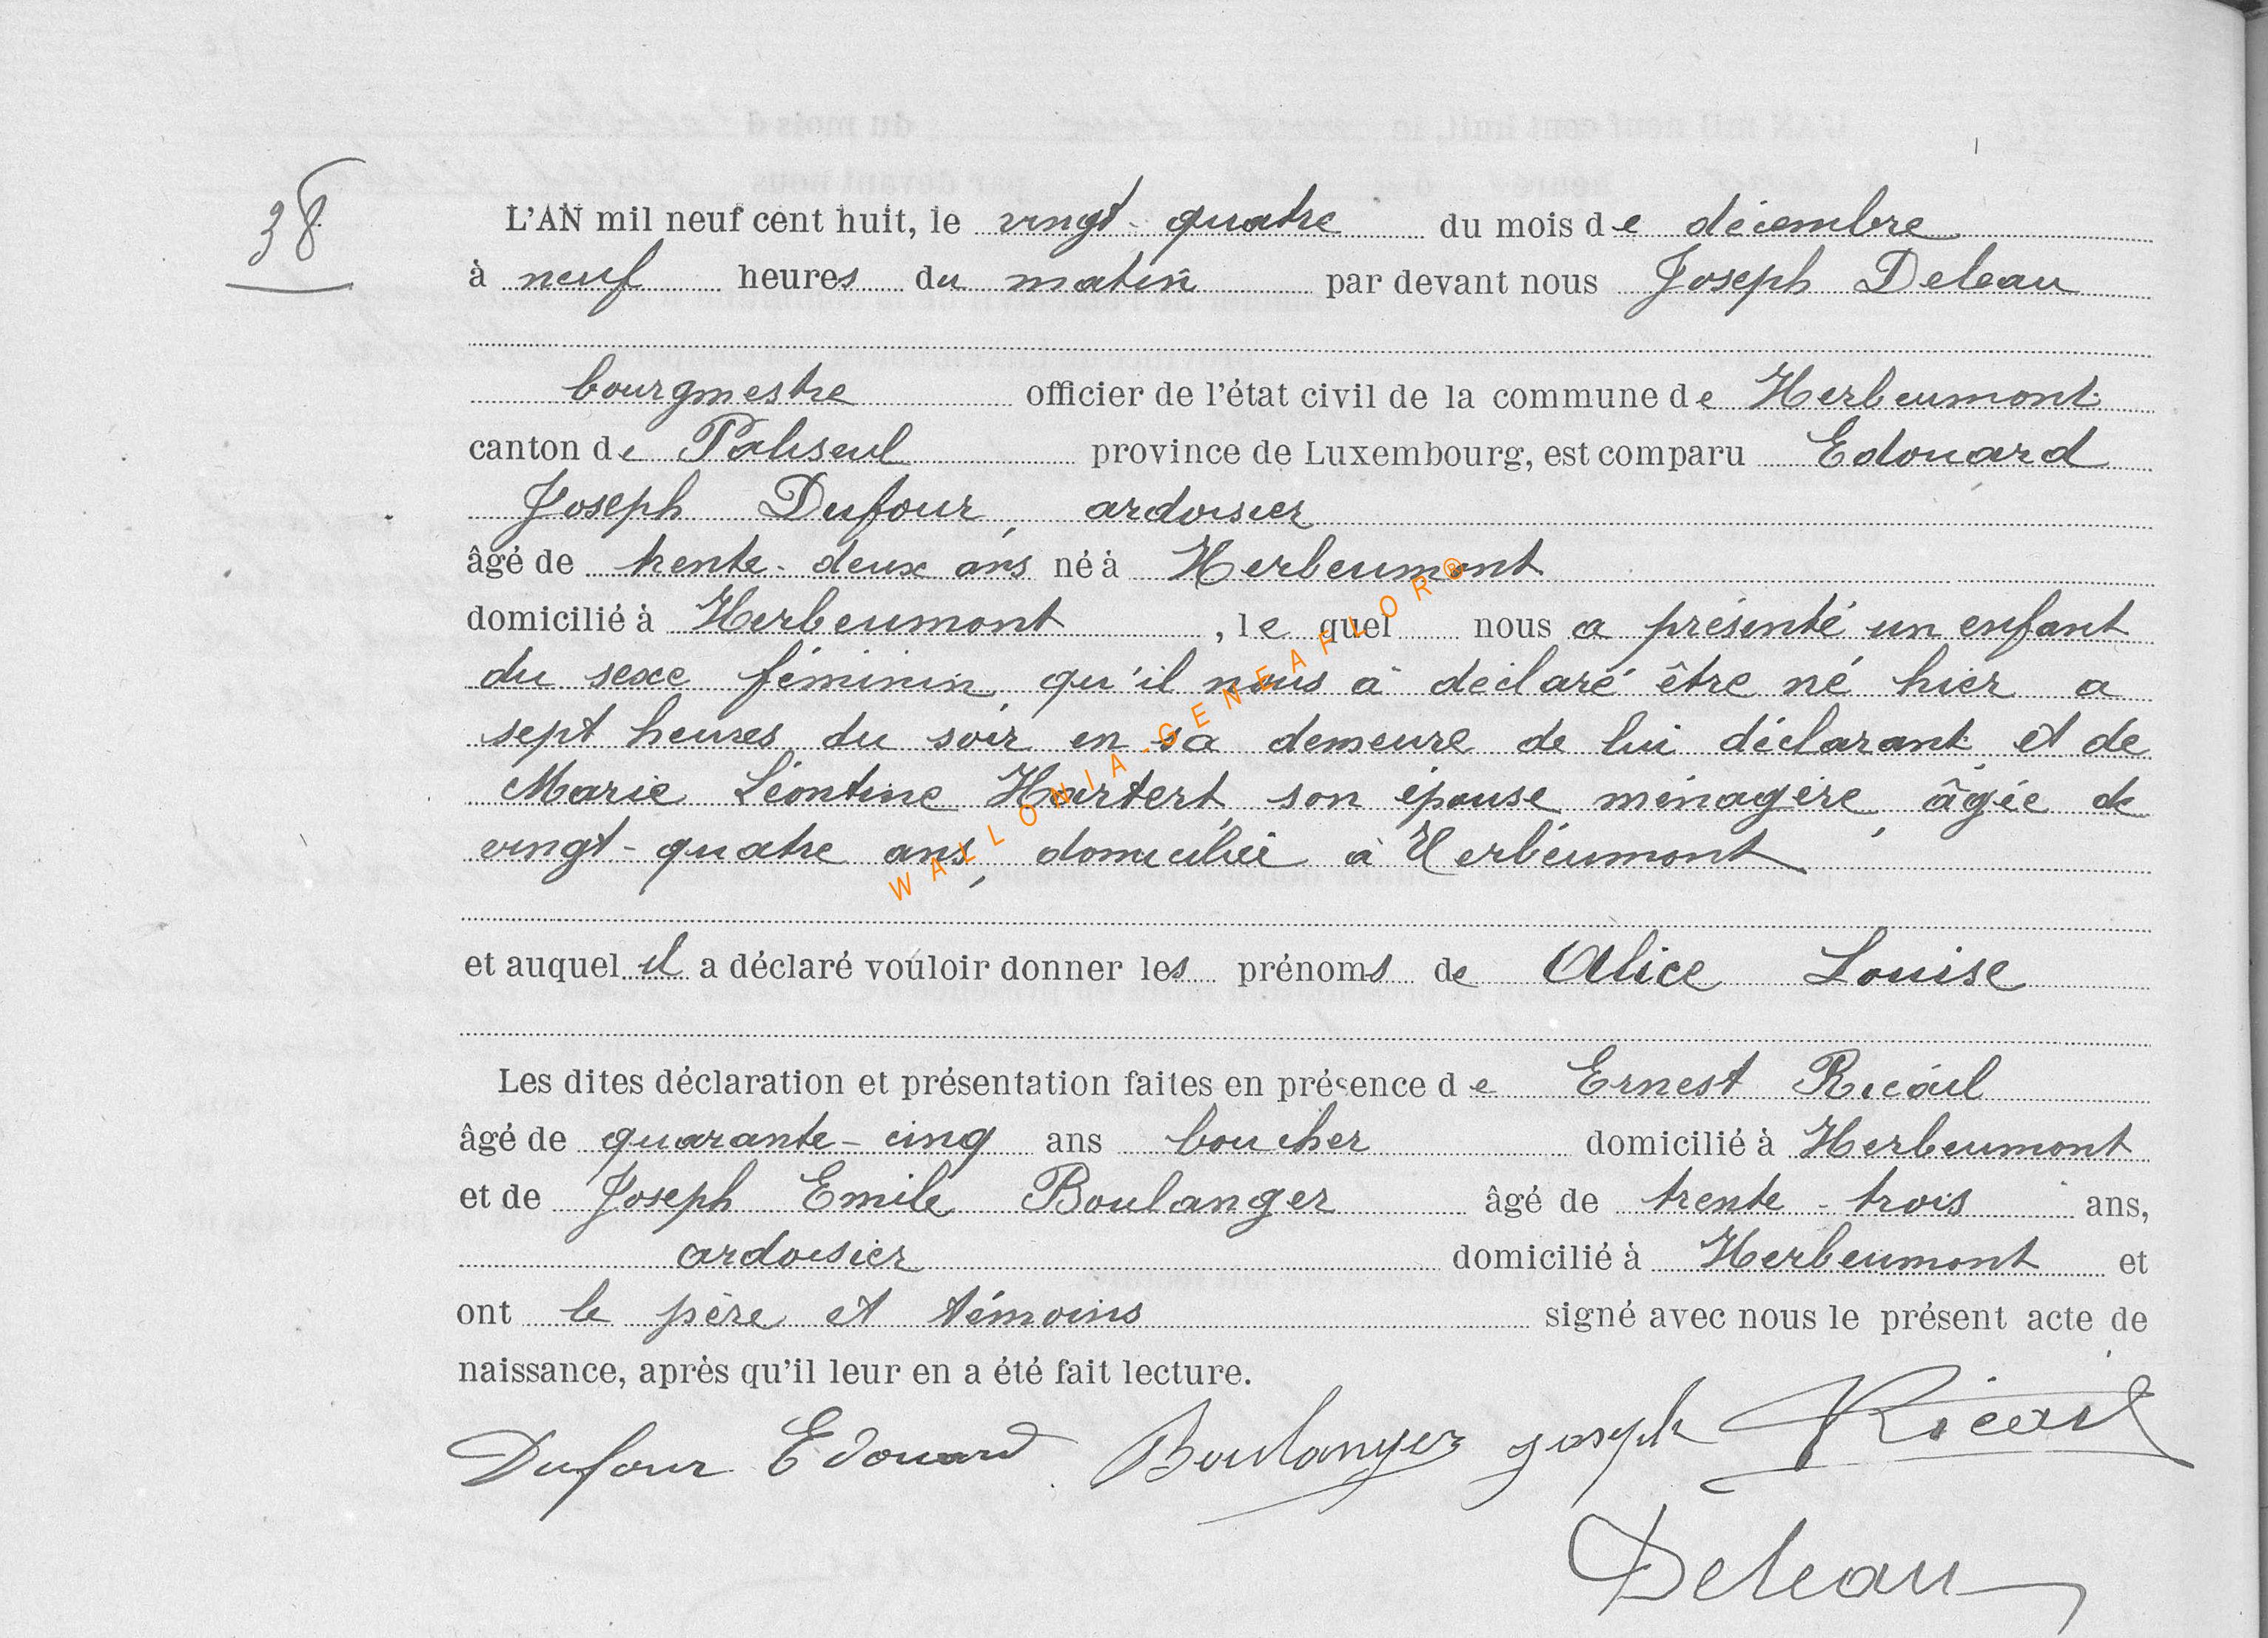 38
L'AN mil neuf cent huit, le vingt-quatre du mois de décembre
à neuf heures du matin par devant nous Joseph Deleau
bourgmestre officier de l'état civil de la commune de Herbeumont
canton de Paliseul province de Luxembourg, est comparu Edouard
Joseph Dufour, ardoisier
âgé de trente-deux ans né à Herbeumont
domicilié à Herbeumont, le quel nous a présenté un enfant
du sexe féminin, qu'il nous a déclaré être né hier a
sept heures du soir en sa demeure de lui déclarant et de
Marie Léontine Hartert, son épouse ménagère, âgée de
vingt-quatre ans, domiciliée à Herbeumont
et auquel il a déclaré vouloir donner les prénoms de Alice Louise
Les dites déclaration et présentation faites en présence de Ernest Ricail
âgé de quarante-cinq ans boucher domicilié à Herbeumont
et de Joseph Emile Boulanger âgé de trente-trois ans,
ardoisier domicilié à Herbeumont et
ont le père et témoins signé avec nous le présent acte de
naissance, après qu'il leur en a été fait lecture.
Dufour Edouard Boulanger Joseph Ricail
Deleau
WALLONIA-GENEAFLOR®